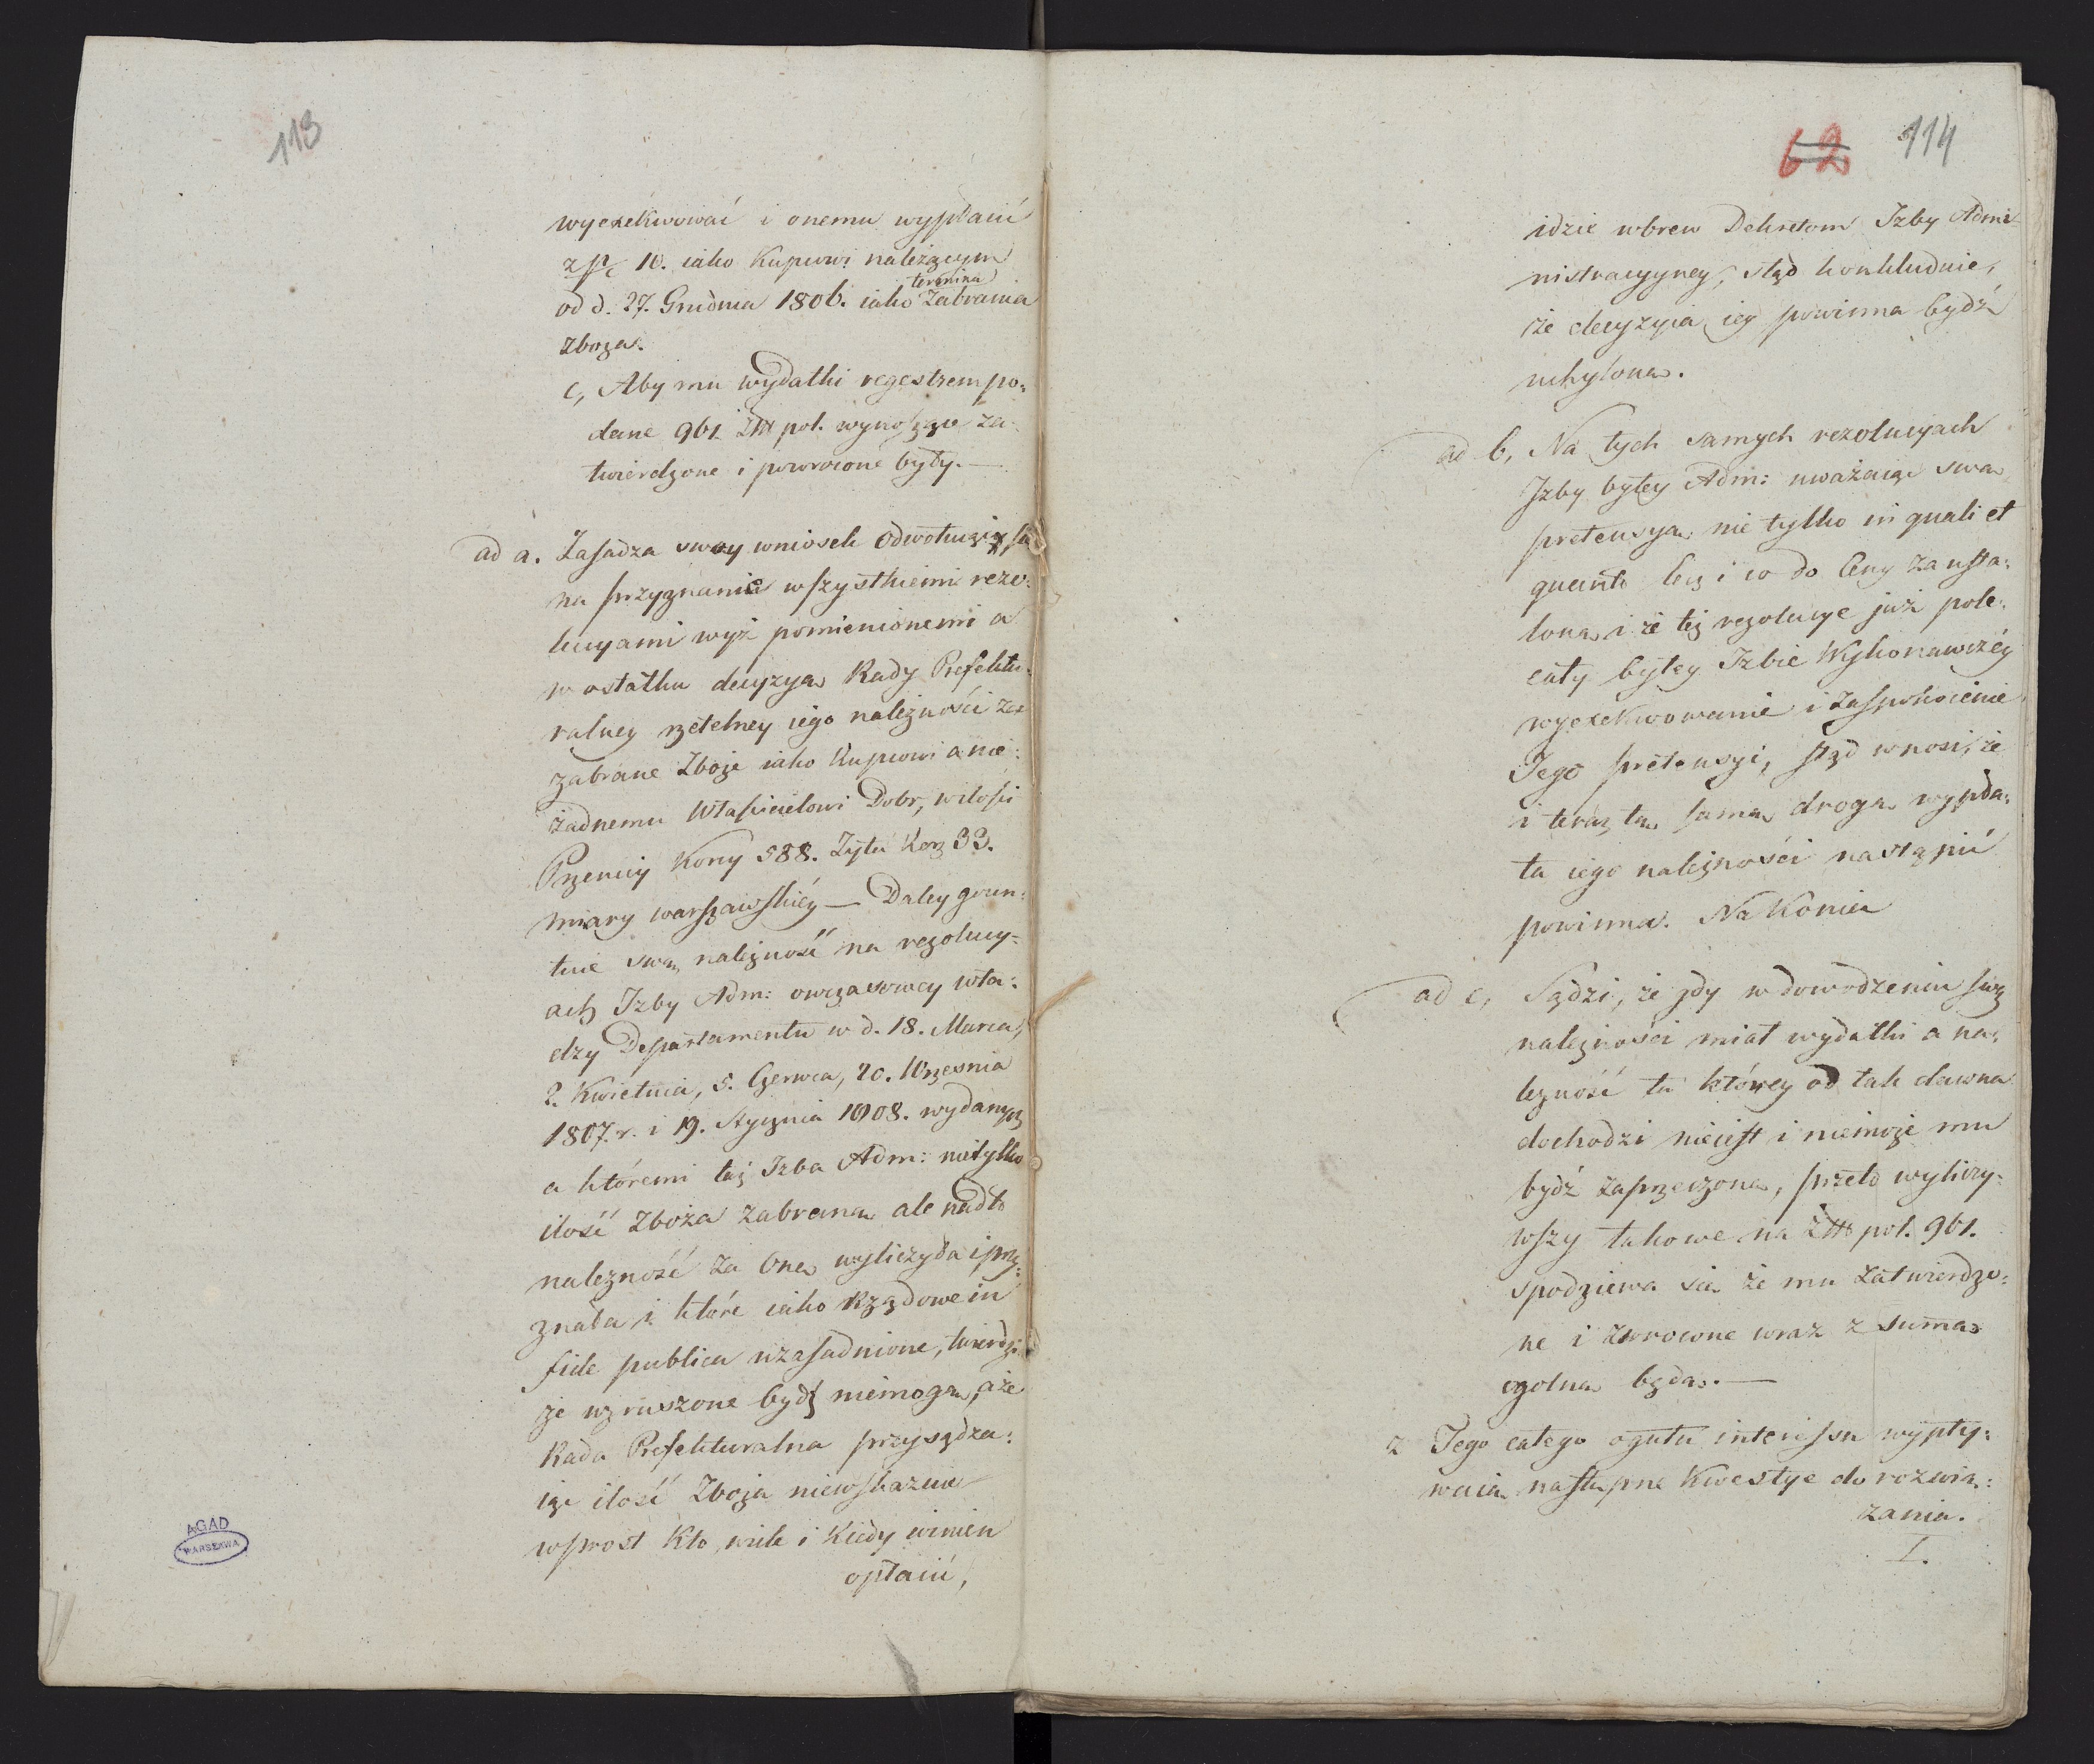 113
wyexekwować i onemu wypłacić
z p/c 10. iako Kupcowi należącym
od d. 27. Grudnia 1806. iako termina Zabrania
Zboza.
c, Aby mu wydatki regestrem po-
dane 961 Złł pol. wynoszące za-
twierdzone i powrocone były.—
ad a. Zasadza swoy wniosek Odwołuiący się
na przyznanie wszystkiemi rezo-
lucyami wyż pomienionemi a
w ostatku decyzyą Rady Prefektu-
ralney rzetelney iego należności za
zabrane Zboże iako Kupcowi a nie
żadnemu Właścicielowi Dobr, wilości
Przenicy Korcy 588. Żyta Korz 33.
miary warszawskiéy — Daley grun-
tuie swą należność na rezolucy-
ach Izby Adm: owczasowey wła-
dzy Departamentu w d. 18. Marca,
2. Kwietnia, 5. Czerwca, 20. Wrzesnia
1807. r. i 19. Stycznia 1808. wydanych
a któremi taż Izba Adm: nietylko
ilość Zboża zabraną ale nadto
należność za Oną wyliczyła i przy-
znała i które iako Rządowe in
fide publica uzasadnione, twierdzi
że wzruszone bydź niemogą, a że
Rada Prefekturalna przysądza-
iąc ilość Zboża niewskazuie
wprost Kto, wiele i Kiedy winien
opłacić,
AGAD
WARSZAWA
62 114
idzie wbrew Dekretom Izby Admi-
nistracyyney, stąd konkluduie,
że decyzyia iey powinna bydź
uchylona.
ad b, Na tych samych rezolucyach
Izby byłey Adm: uważaiąc swą
pretensyą nie tylko in quali et
quanto lecz i co do Ceny za usta-
loną i że też rezolucye już pole-
cały byłey Izbie Wykonawczéy
wyexekwowanie i zaspokoienie
Jego pretensyi, stąd wnosi, że
i teraz tą samą drogą wypła-
ta iego należności nastąpić
powinna. Na Koniec
ad c, Sądzi, że gdy w dowodzeniu swey
należności miał wydatki a na-
leżność ta któréy od tak dawna
dochodzi nieiest i niemoże mu
bydź zaprzeczoną, przeto wyliczy-
wszy takowe na Złł pol. 961.
spodziewa się że mu zatwierdzo-
ne i zwrocone wraz z Sumą
ogolną będą.—
z Tego całego ogułu interessu wypły-
waią następne Kwestye do rozwią-
zania.
I.